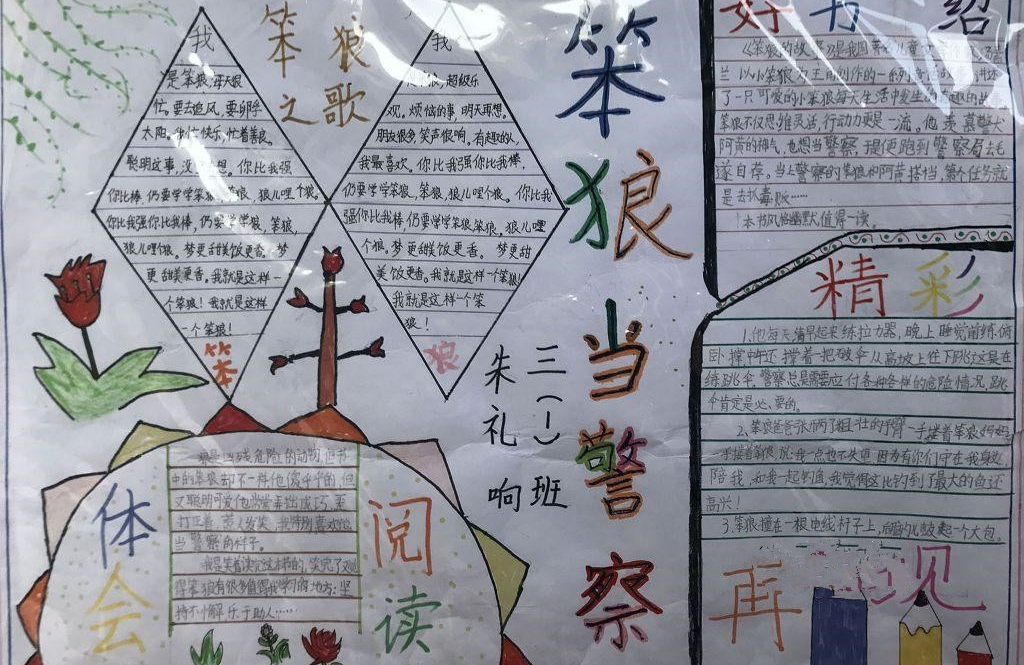 笨狼之歌
我
是笨狼,每天很
忙。要去追风,要孵
太阳。我忙快乐,忙着善良。
聪明这事,没想。你比我强
你比棒,仍要学学笨狼,笨狼,狼儿哩个狼。
你比我强你比我棒,仍要学学狼,笨狼,
狼儿哩个狼。梦更甜美饭更香。梦
更甜美更香。我就是这样一
个笨狼!我就是这样
一个笨狼!
笨
我
笨狼,超级乐
观。烦恼的事,明天再想。
朋友很多,笑声很响。有趣的人,
我最喜欢。你比我强你比我棒,
仍要学学笨狼,笨狼,狼儿哩个狼。你比我
强你比我棒,仍要学学笨狼笨狼,狼儿哩
个狼。梦更甜美饭更香。梦更甜
美饭更香。我就是这样一个笨狼!
我就是这样一个笨
狼!
狼
笨狼当警察
三(1)班
朱礼响
好书介绍
《笨狼的故事》是我国著名儿童
兰以小笨狼为主角创作的一系列
了一只可爱的小笨狼每天生活中发生的有趣的
笨狼不仅思维灵活,行动力更是一流。他羡慕警犬
阿黄的神气,也想当警察,于是便跑到警察局去毛
遂自荐。当上警察的笨狼和阿黄搭档,第个任务就
是去扒毒贩……
本书风格幽默,值得一读。
精彩
1.他每天清早起来练拉力器,晚上睡觉前练俯
卧撑,中午还撑着一把破伞从高坡上往下跳,这是在
练跳伞,警察总是需要应付各种各样的危险情况,跳
伞肯定是必要的。
2.笨狼爸爸张开两了粗壮的手臂一手搂着笨狼妈妈
一手搂着笨狼说:我一点也不失望。因为有你们守在我身边,
陪我,和我一起钓鱼,我觉得这比钓到了最大的鱼还
高兴!
3.笨狼撞在一根电线杆子上,脑门儿鼓起一个大包。
再见
阅读体会
狼是残危险的动物,但书
中的笨狼却不一样他
又聪明可爱他常常弄出成巧,更
打正着,惹人发笑。我特别喜欢他
当警察的样子。
我是笑着读完这本书的,笑完了
得笨狼有很多值得我学习的地方:坚
持不懈乐于助人……